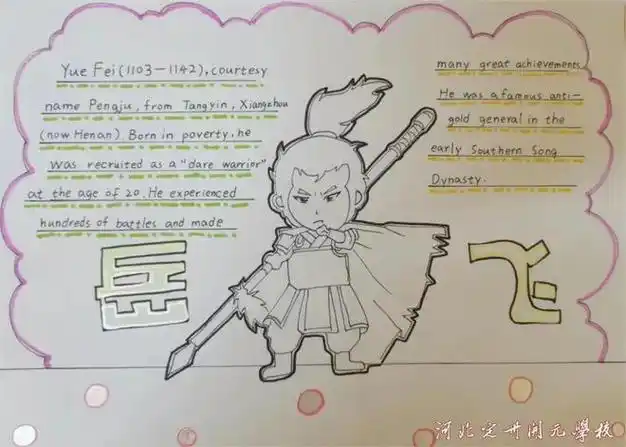 Yue Fei (1103-1142), courtesy
name Pengju, from Tangyin, Xiangzhou
(now Henan). Born in poverty, he
was recruited as a "dare warrior"
at the age of 20. He experienced
hundreds of battles and made
many great achievements.
He was a famous anti-
gold general in the
early Southern Song
Dynasty.
岳飞
河北定州开元学校